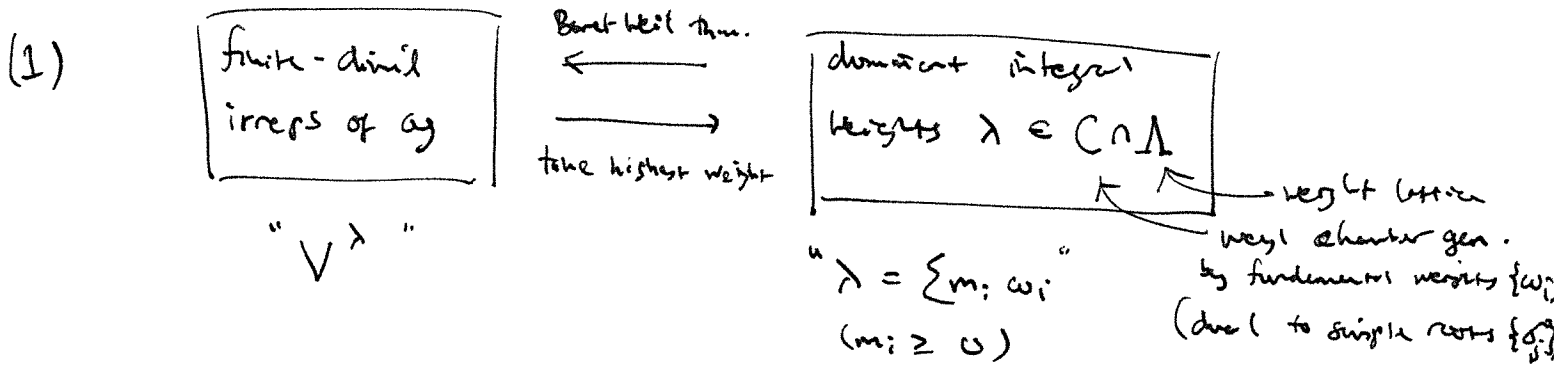 (1)
finite-dim'l
irreps of 𝔤
Borel-Weil thm.
take highest weight
dominant integral
weights λ ∈ C ∩ Λ
weight lattice
weyl chamber gen.
by fundamental weights {ω_i
(dual to simple roots {σ_j}
"V^λ"
"λ = Σ m_i ω_i"
(m_i ≥ 0)